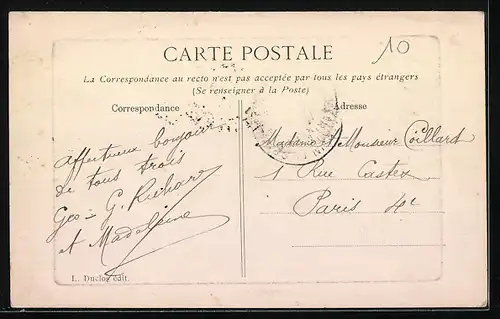 10
CARTE POSTALE
La Correspondance au recto n'est pas acceptée par tous les pays étrangers
(Se renseigner à la Poste)
Correspondance
Adresse
affectueux bonjour
de tous trois
Geo - G. Richard
et Madeleine
Madame et Monsieur Coillard
1 Rue Castex
Paris 4e
L. Duclos édit.